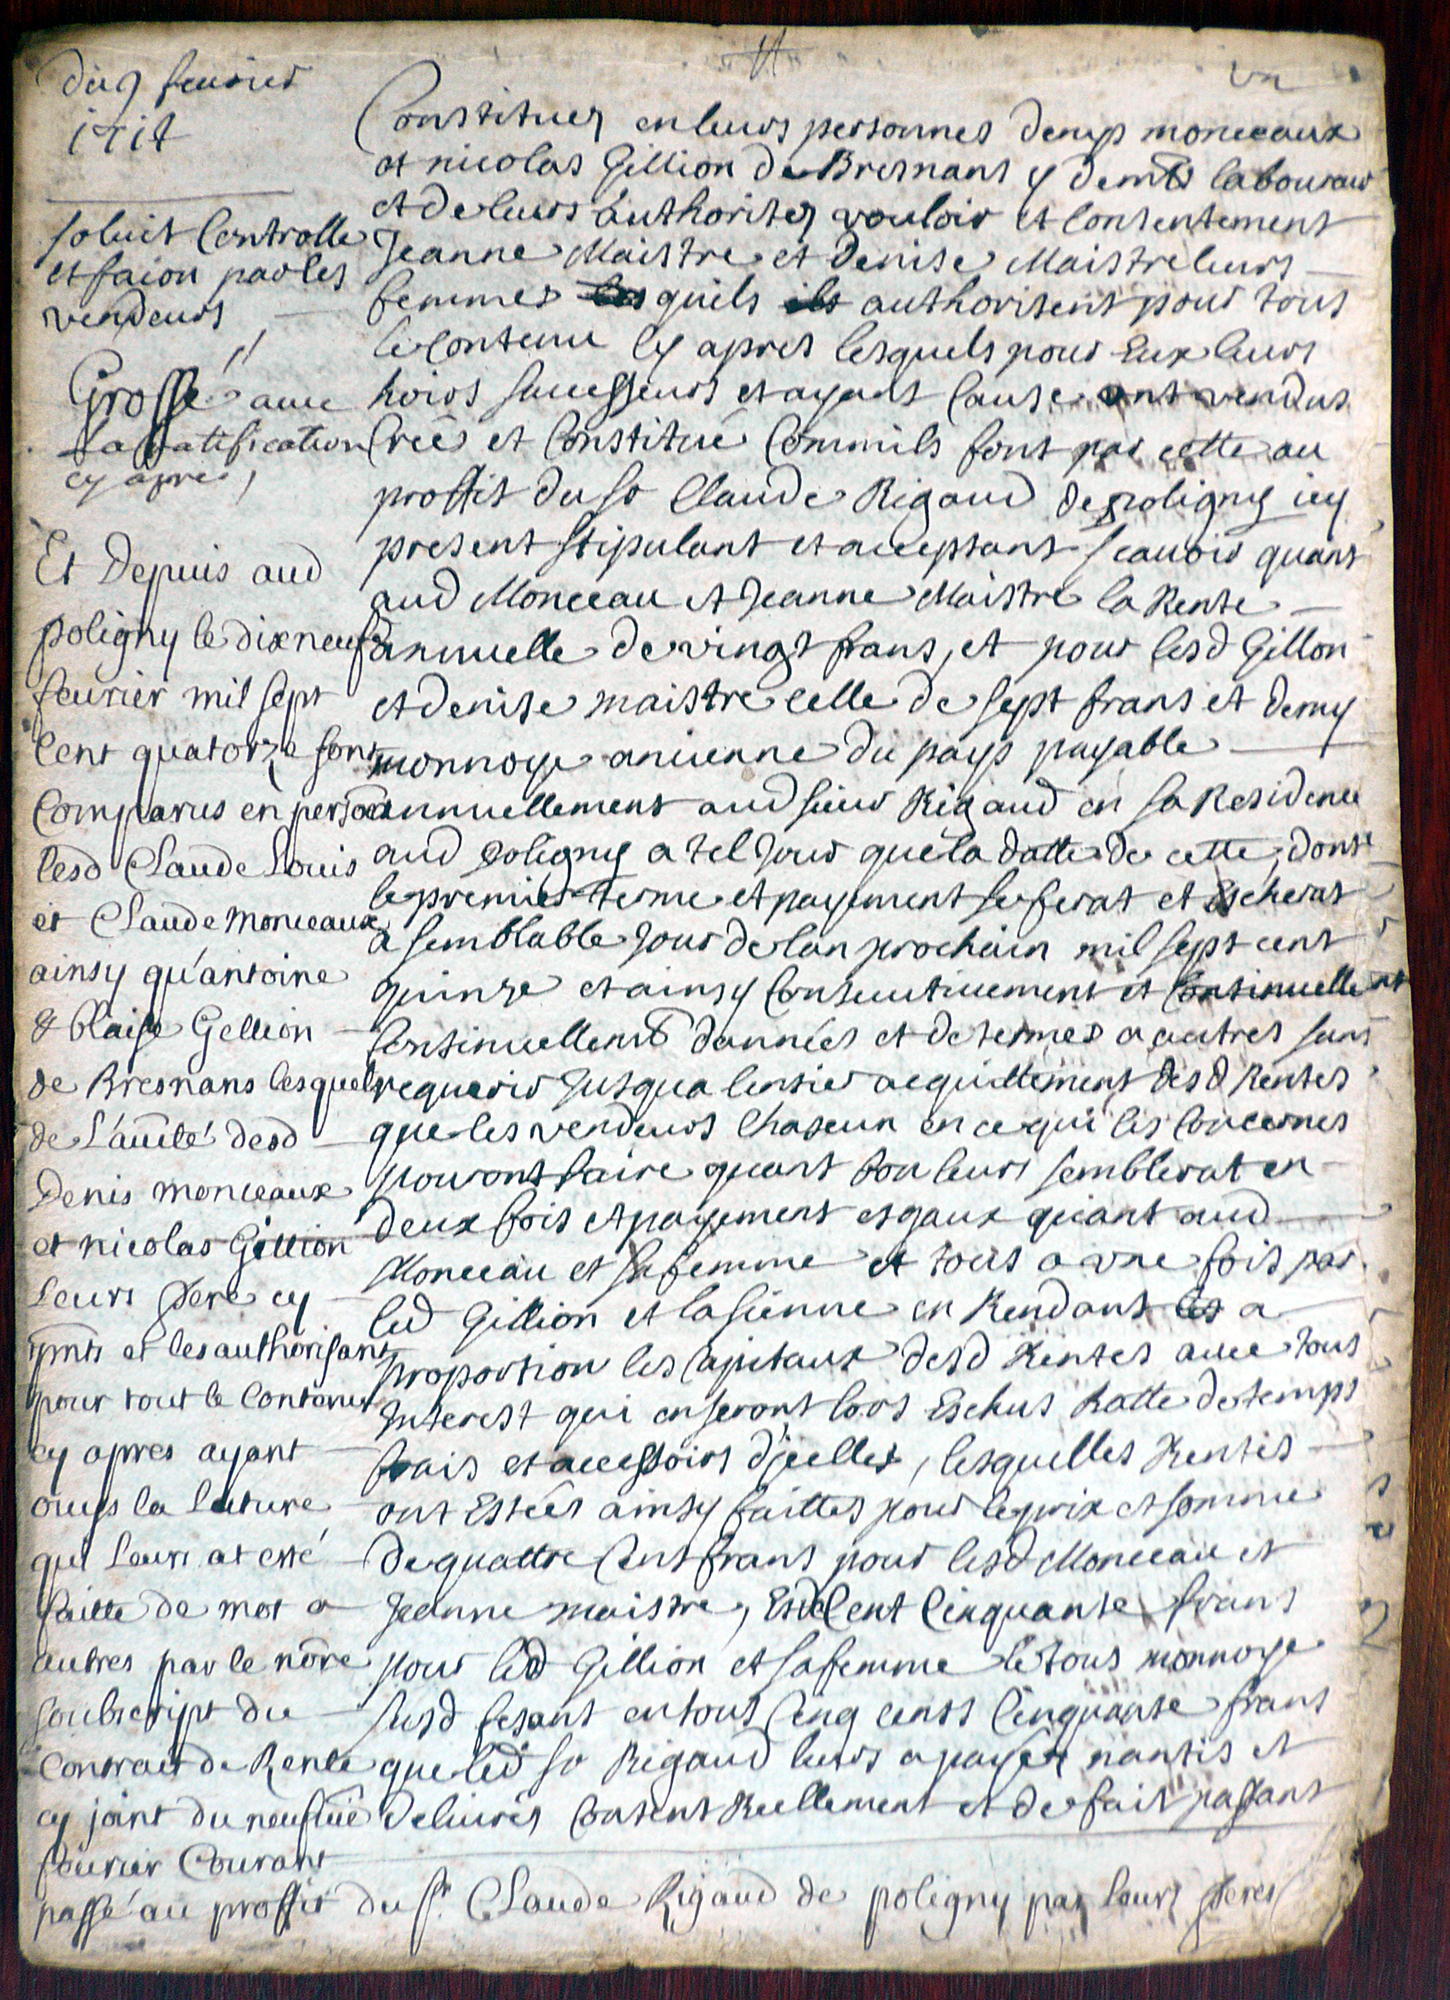 du 9 feurier
1714
soluit Controlle
et faion par les
vendeurs
Grossé auec
la Ratification
cy apres,
Constituez en leurs personnes denys monceaux
et nicolas Gillion de Bresnans y demts laboureurs
et de leurs authoritez vouloir et Consentement
Jeanne Maistre et Denise Maistre leurs
femmes quils authorisent pour tous
le Contenu Cy apres lesquels pour Eux leurs
hoirs successeurs et ayant Cause ont vendus
Créé et Constitué Comm'ils font par cette au
proffit du sr Claude Rigaud de poligny icy
present stipulant et acceptant scauoir quant
aud Monceau et Jeanne Maistre la Rente
annuelle de vingt frans, et pour lesd Gillon
et denise maistre celle de sept frans et demy
monnoye ancienne du pays payable
annuellement aud sieur Rigaud en sa Residence
aud poligny a tel Jour que la datte de cette, dont
le premier terme et payement se ferat et Escherat
a semblable Jour de lan prochain mil sept cent
quinze et ainsy Consecutiuement et Continuellemt
Continuellemt d'années et de termes a autres sans
requerir Jusqua l'entier acquittement desd Rentes
que les vendeurs Chascun en ce qui les Concernes
pouront faire quant bon leurs semblerat en
deux fois et payement esgaux quant aud
Monceau et sa femme et tous a vne fois par
led Gillion et la sienne en Rendant les a
proportion les Capitaux desd Rentes auec tous
Interest qui en seront lors Eschus Ratte de temps
frais et accessoirs d'jcelles, lesquelles Rentes
ont Estées ainsy faittes pour le prix et somme
de quattre Cent frans pour lesd Monceau et
Jeanne maistre, Et de Cent Cinquante frans
pour led Gillion et sa femme le tous monnoye
susd fesant en tous Cinq cents Cinquante frans
que led sr Rigaud leurs a payez nantis et
deliurés Contant Reellement et de fait passant
Et Depuis aud
poligny le dixneuf
feurier mil sept
Cent quatorze sont
Comparus en person
lesd Claude Louis
et Claude Monceaux
ainsy qu'antoine
& blaise Gellion
de Bresnans lesquels
de L'autté desd
Denis monceaux
et nicolas Gillion
Leurs pere cy
pnts et les authorisant
pour tout le Contenu
cy apres ayant
ouys la lecture
qui Leurs at esté
faitte de mot a
autres par le nore
soubscript du
Contract de Rente
cy joint du neufuie
feurier Courant
passé au proffit du sr. Claude Rigaud de poligny par leurs peres